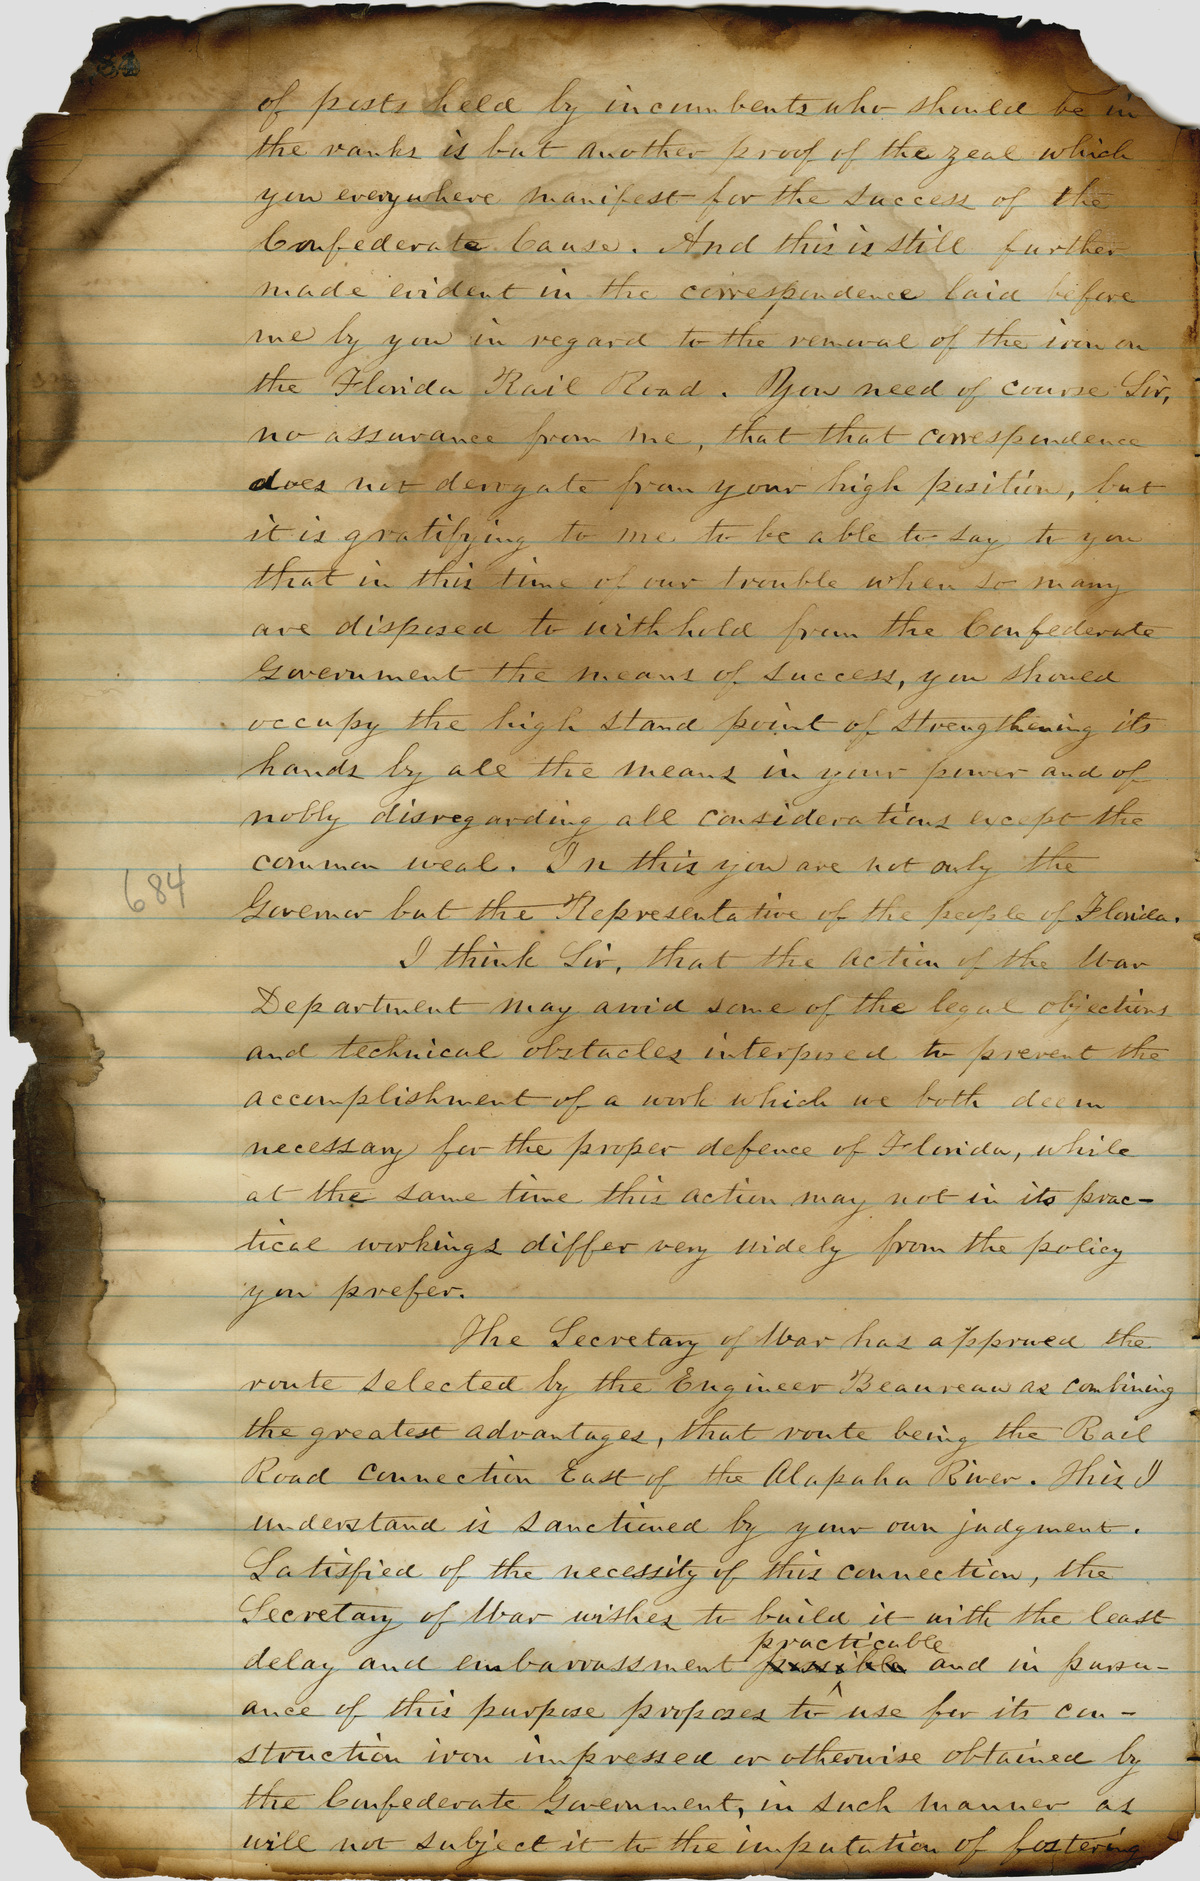 of posts held by incumbents who should be in
the ranks is but another proof of the zeal which
you everywhere manifest for the success of the
Confederate Cause. And this is still further
made evident in the correspondence laid before
me by you in regard to the removal of the iron on
the Florida Rail Road. You need of course Sir,
no assurance from me, that that correspondence
does not derogate from your high position, but
it is gratifying to me to be able to say to you
that in this time of our trouble when so many
are disposed to withhold from the Confederate
Government the means of success, you should
occupy the high stand point of strengthening its
hands by all the means in your power and of
nobly disregarding all considerations except the
common weal. In this you are not only the
684
Governor but the Representative of the people of Florida.
I think Sir, that the action of the War
Department may avoid some of the legal objections
and technical obstacles interposed to prevent the
accomplishment of a work which we both deem
necessary for the proper defence of Florida, while
at the same time this action may not in its prac-
tical workings differ very widely from the policy
you prefer.
The Secretary of War has approved the
route selected by the Engineer Beaureau as combining
the greatest advantages, that route being the Rail
Road connection East of the Alapaha River. This I
understand is sanctioned by your own judgment.
Satisfied of the necessity of this connection, the
Secretary of War wishes to build it with the least
practicable
delay and embarrassment possible and in pursu-
ance of this purpose proposes to use for its con-
struction iron impressed or otherwise obtained by
the Confederate Government, in such manner as
will not subject it to the imputation of fostering